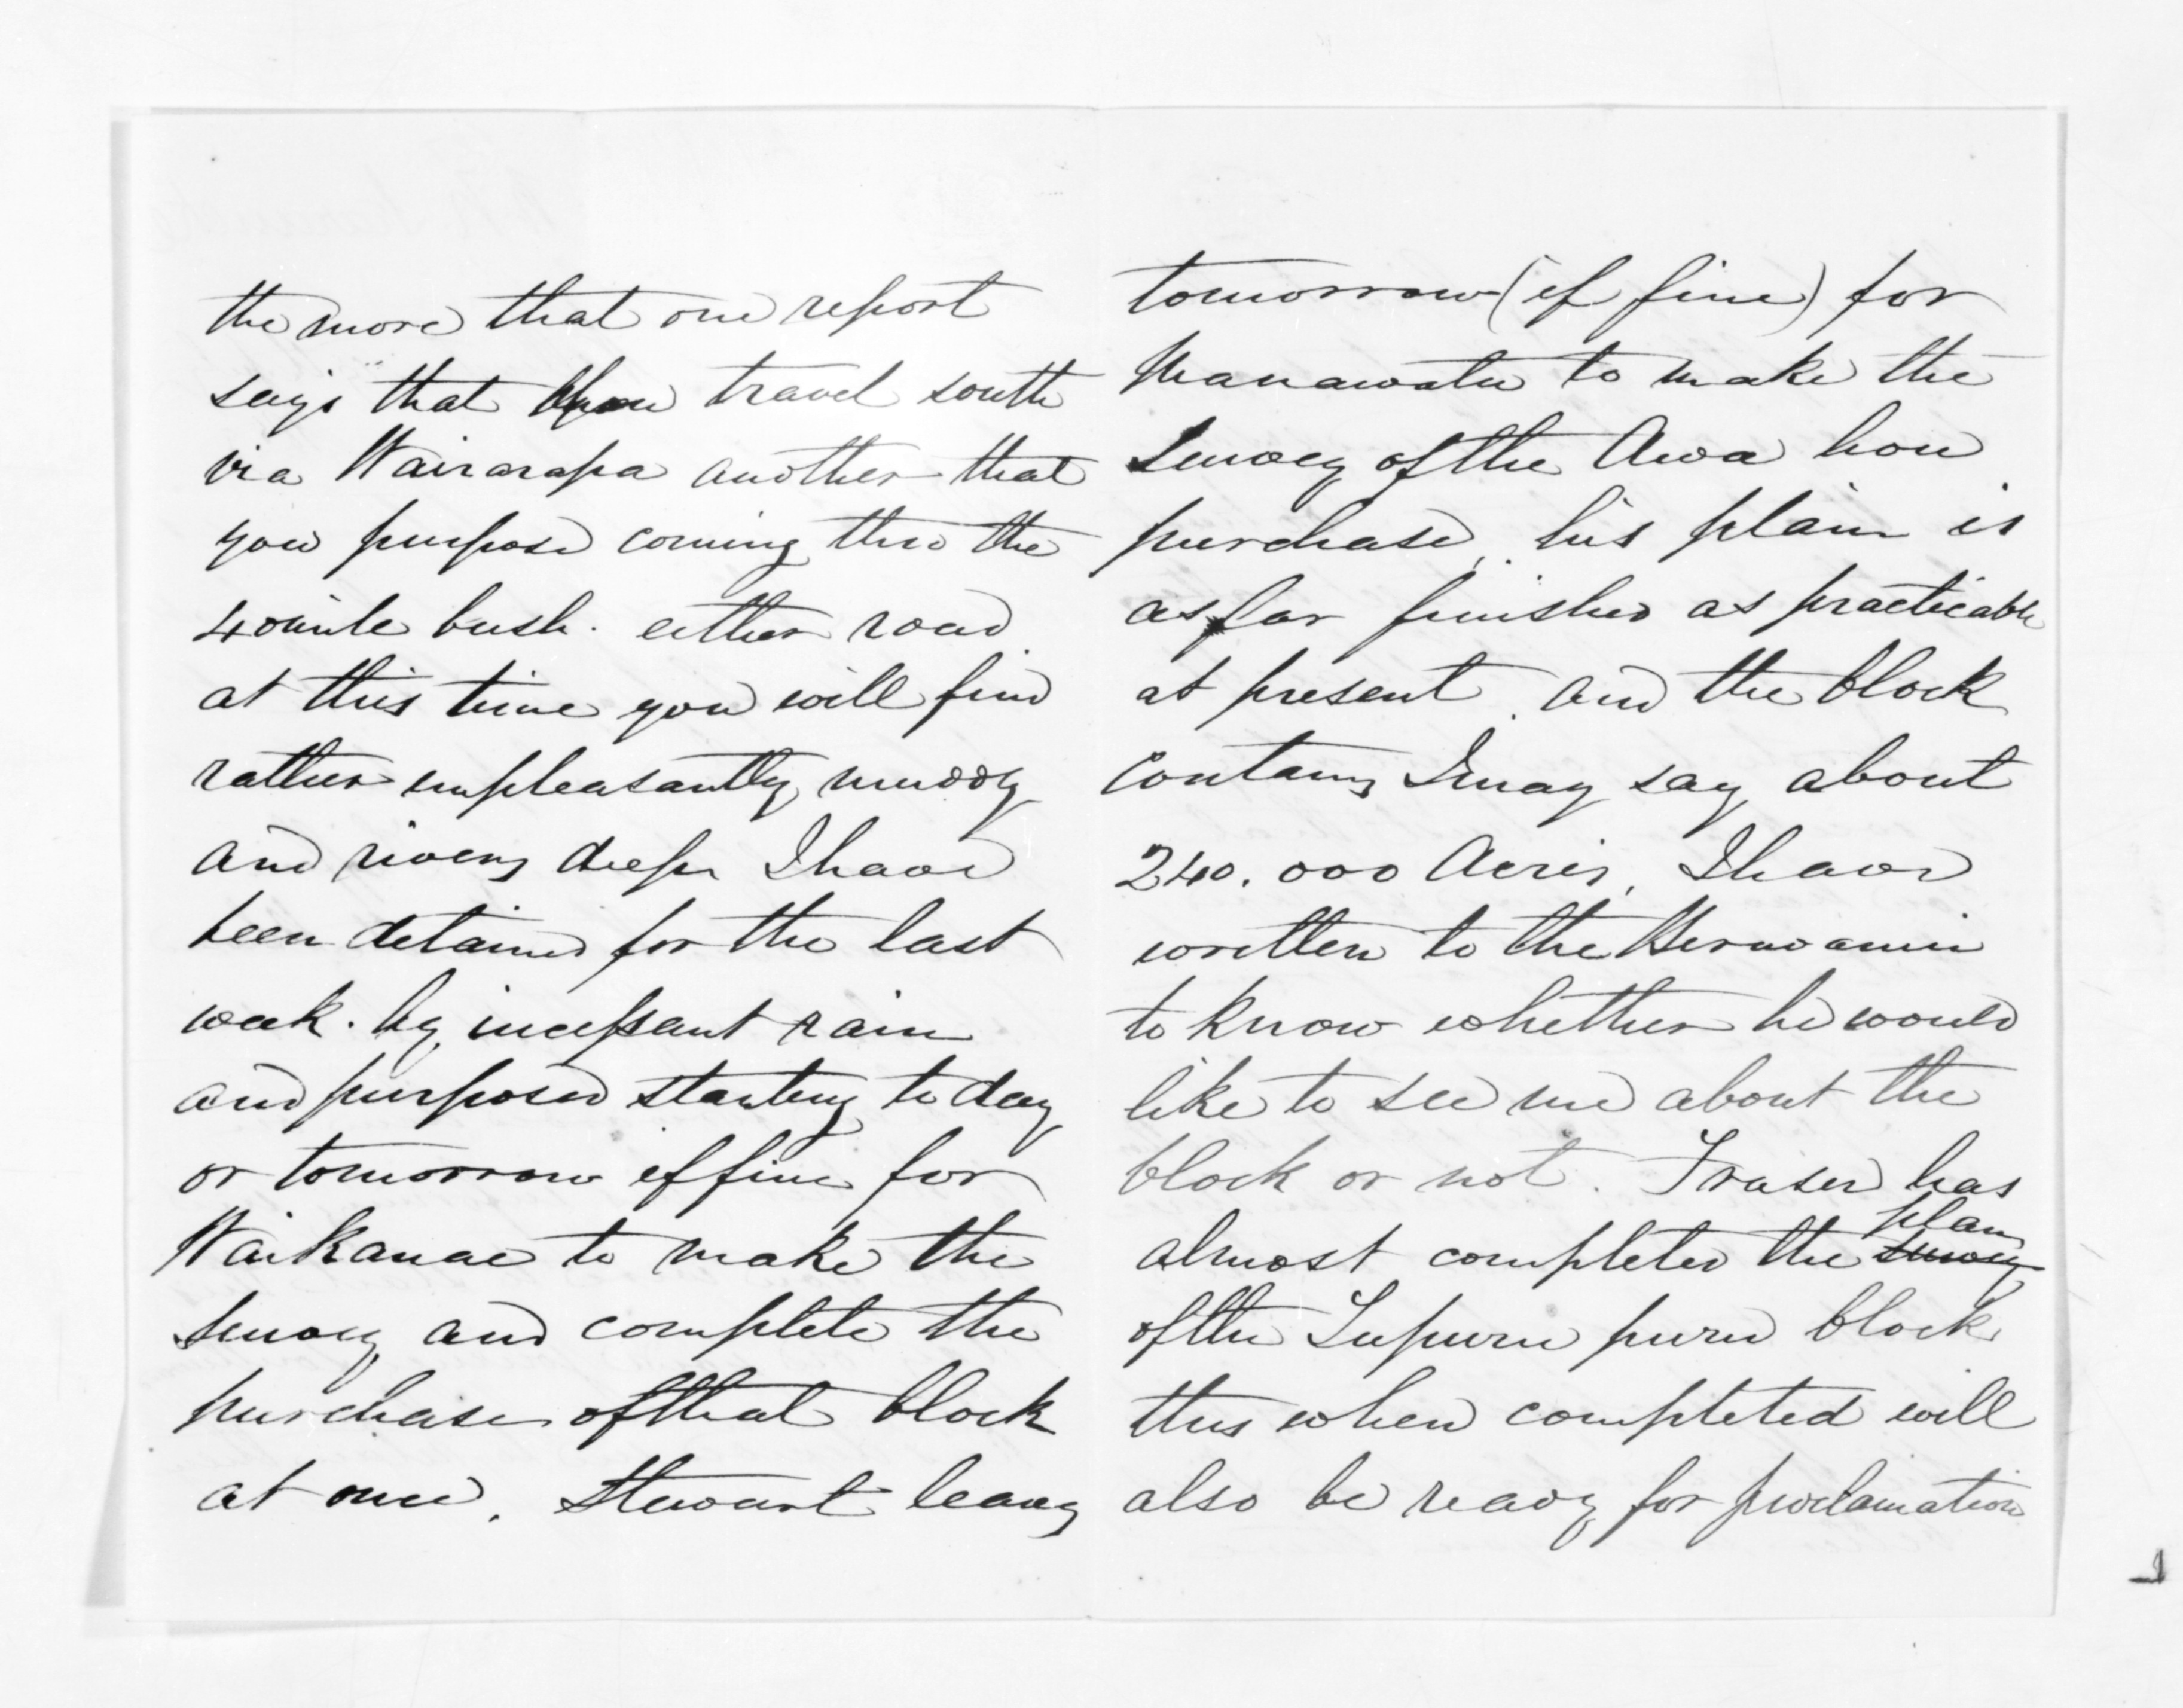 the more that one report
says that you travel south
via Wairarapa another that
you purpose coming thro the
40 mile bush. either road
at this time you will find
rather unpleasantly muddy
and rivers deep I have
been detained for the last
week. by incessant rain
and purposed starting to day
or tomorrow if fine for
Waikanae to make the
survey and complete the
purchase of that block
at once. Stewart leaves
tomorrow (if fine) for
Manawatu to make the
survey of the Awa hou
purchase, his plan is
as far finished as practicable
at present. and the block
contains I may say about
240.000 Acres, I have
written to the
to know whether he would
like to see me about the
block or not. Fraser has
almost completed the survey plan
of the Tupurupuru block
this when completed will
also be ready for proclamation